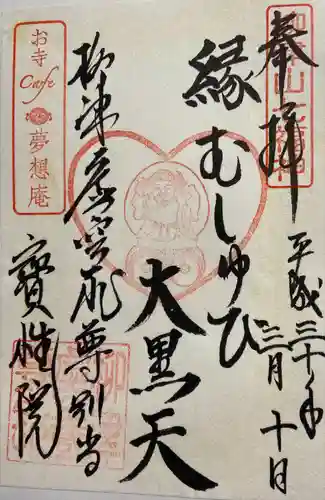 奉拝
平成三十年
三月十日
縁むしゅび
大黒天
柳津虚空蔵尊別当
寳性院
お寺
Cafe
夢想庵